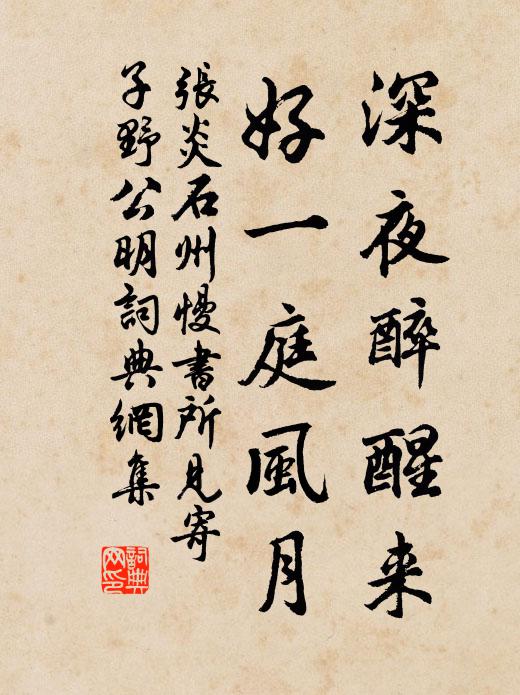 深夜醉醒来
好一庭風月
張炎石州慢書所見寄
子野公明詞典網集
詞典
网印